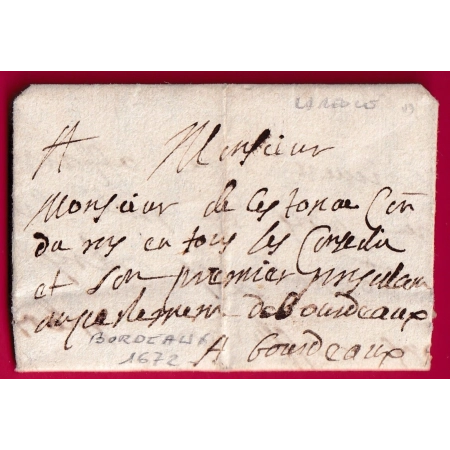 LA REOLE
A Monsieur
Monsieur de Lestonac Con
du roy en tous ses Conseilx
et son premier
au parlemen de Bourdeaux
BORDEAUX
1672
A bourdeaux